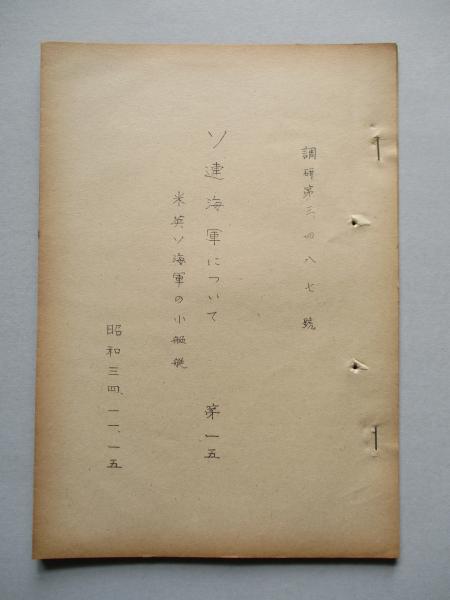 調研第三、四八七號
ソ連海軍について 第一五
米英ソ海軍の小艦艇
昭和三四、一一、一五